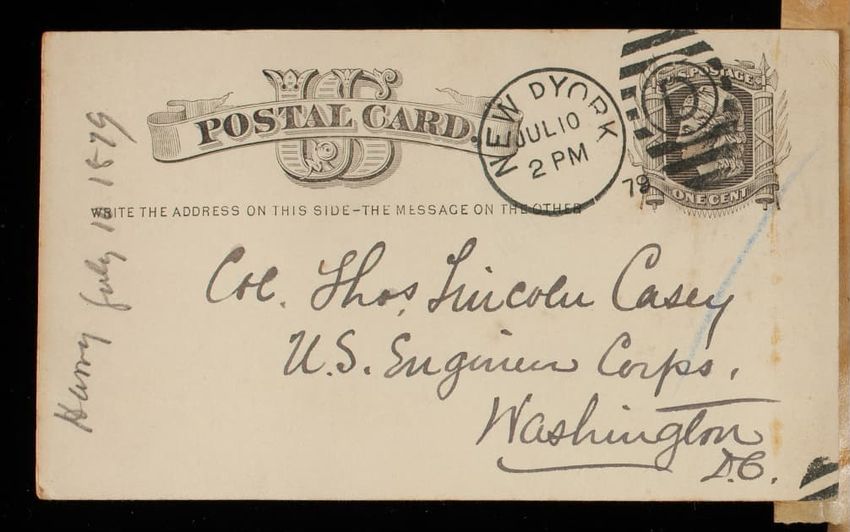 US
POSTAL CARD.
NEW D YORK
JUL 10
2 PM
79
D
U.S. POSTAGE
ONE CENT
WRITE THE ADDRESS ON THIS SIDE–THE MESSAGE ON THE OTHER
Col. Thos. Lincoln Casey
U.S. Engineer Corps.
Washington
D.C.
Harry July 10 1879